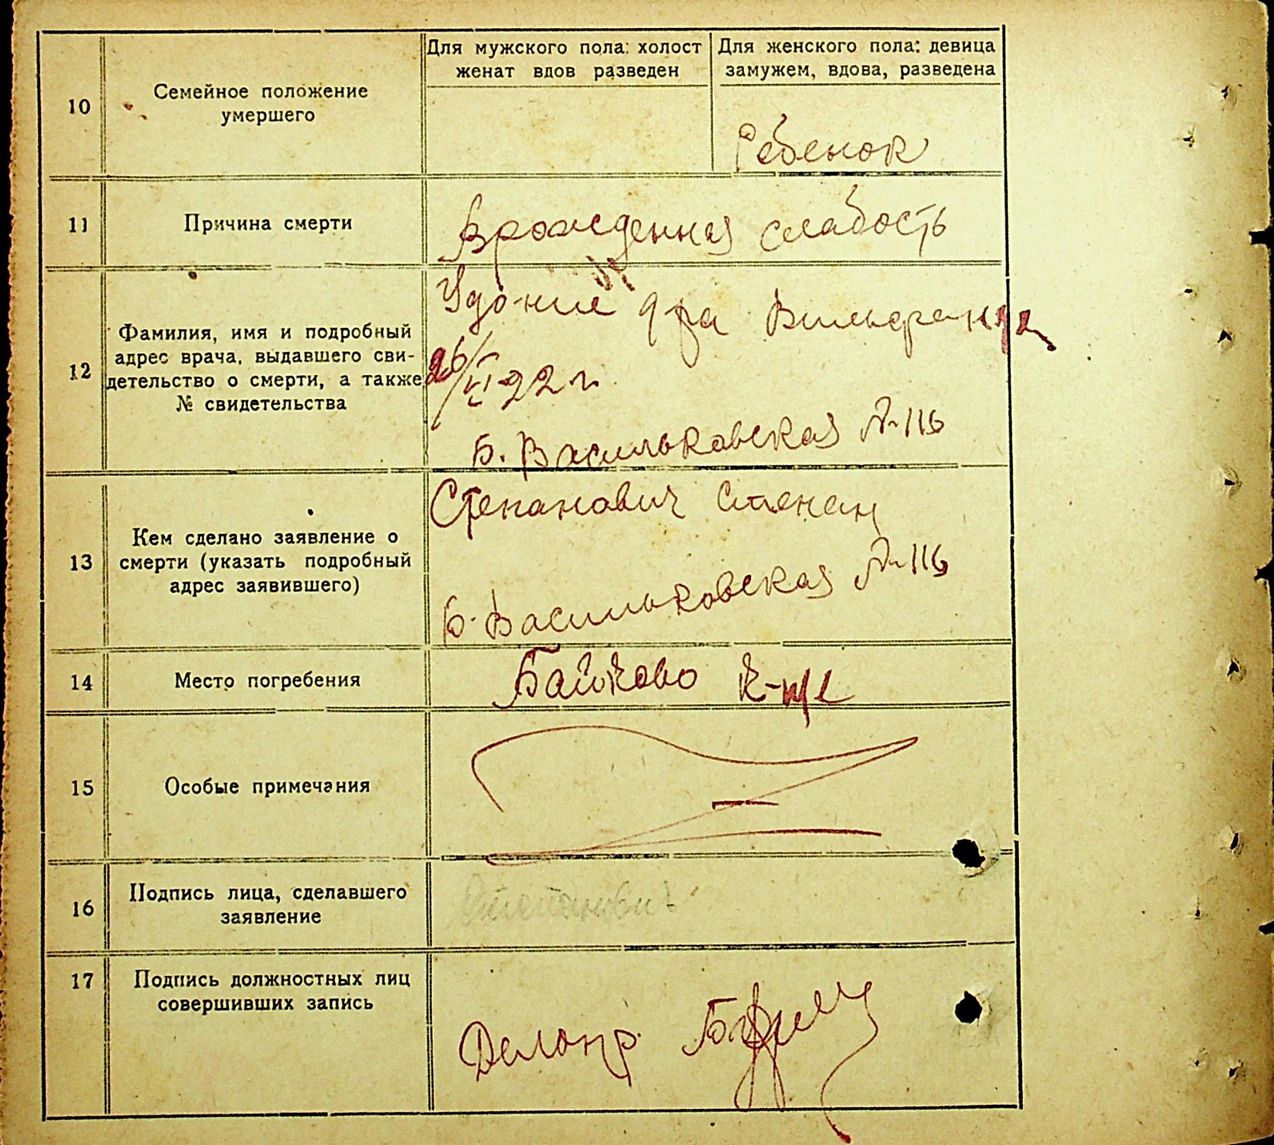 Для мужского пола: холост
женат вдов разведен
Для женского пола: девица
замужем, вдова, разведена
10
Семейное положение
умершего
Ребенок
11
Причина смерти
Врожденная слабость
12
Фамилия, имя и подробный
адрес врача, выдавшего сви-
детельство о смерти, а также
№ свидетельства
Удо-ние д-ра
26/VI-22 г.
Б. Васильковская № 116
13
Кем сделано заявление о
смерти (указать подробный
адрес заявившего)
Степанович Степан
Б. Васильковская № 116
14
Место погребения
Байково к-ще
15
Особые примечания
16
Подпись лица, сделавшего
заявление
Степанович
17
Подпись должностных лиц
совершивших запись
Делопр.